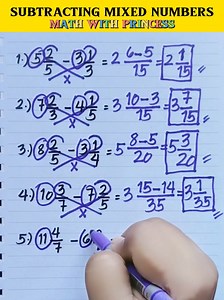 SUBTRACTING MIXED NUMBERS
MATH WITH PRINCESS
1.) 5 2/5 - 3 1/3 = 2 6-5/15 = 2 1/15
2.) 7 2/3 - 4 1/5 = 3 10-3/15 = 3 7/15
3.) 8 2/5 - 3 1/4 = 5 8-5/20 = 5 3/20
4.) 10 3/7 - 7 2/5 = 3 15-14/35 = 3 1/35
5.) 11 4/7 - 6